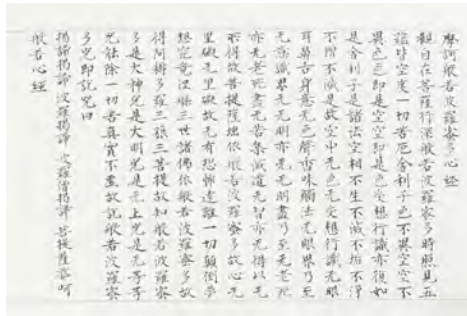 摩訶般若波羅蜜多心経
觀自在菩薩行深般若波羅蜜多時照見五
蘊皆空度一切苦厄舎利子色不異空空不
異色色即是空空即是色受想行識亦復如
是舎利子是諸法空相不生不滅不垢不浄
不増不減是故空中无色无受想行識无眼
耳鼻舌身意无色聲香味觸法无眼界乃至
无意識界无无明亦无无明盡乃至无老死
亦无老死盡无苦集滅道无智亦无得以无
所得故菩提薩埵依般若波羅蜜多故心无
罣礙无罣礙故无有恐怖遠離一切顛倒夢
想究竟涅槃三世諸佛依般若波羅蜜多故
得阿耨多羅三藐三菩提故知般若波羅蜜
多是大神咒是大明咒是无上咒是无等等
咒能除一切苦真實不虚故説般若波羅蜜
多咒即説咒曰
揭諦揭諦 波羅揭諦 波羅僧揭諦 菩提薩婆呵
般若心経